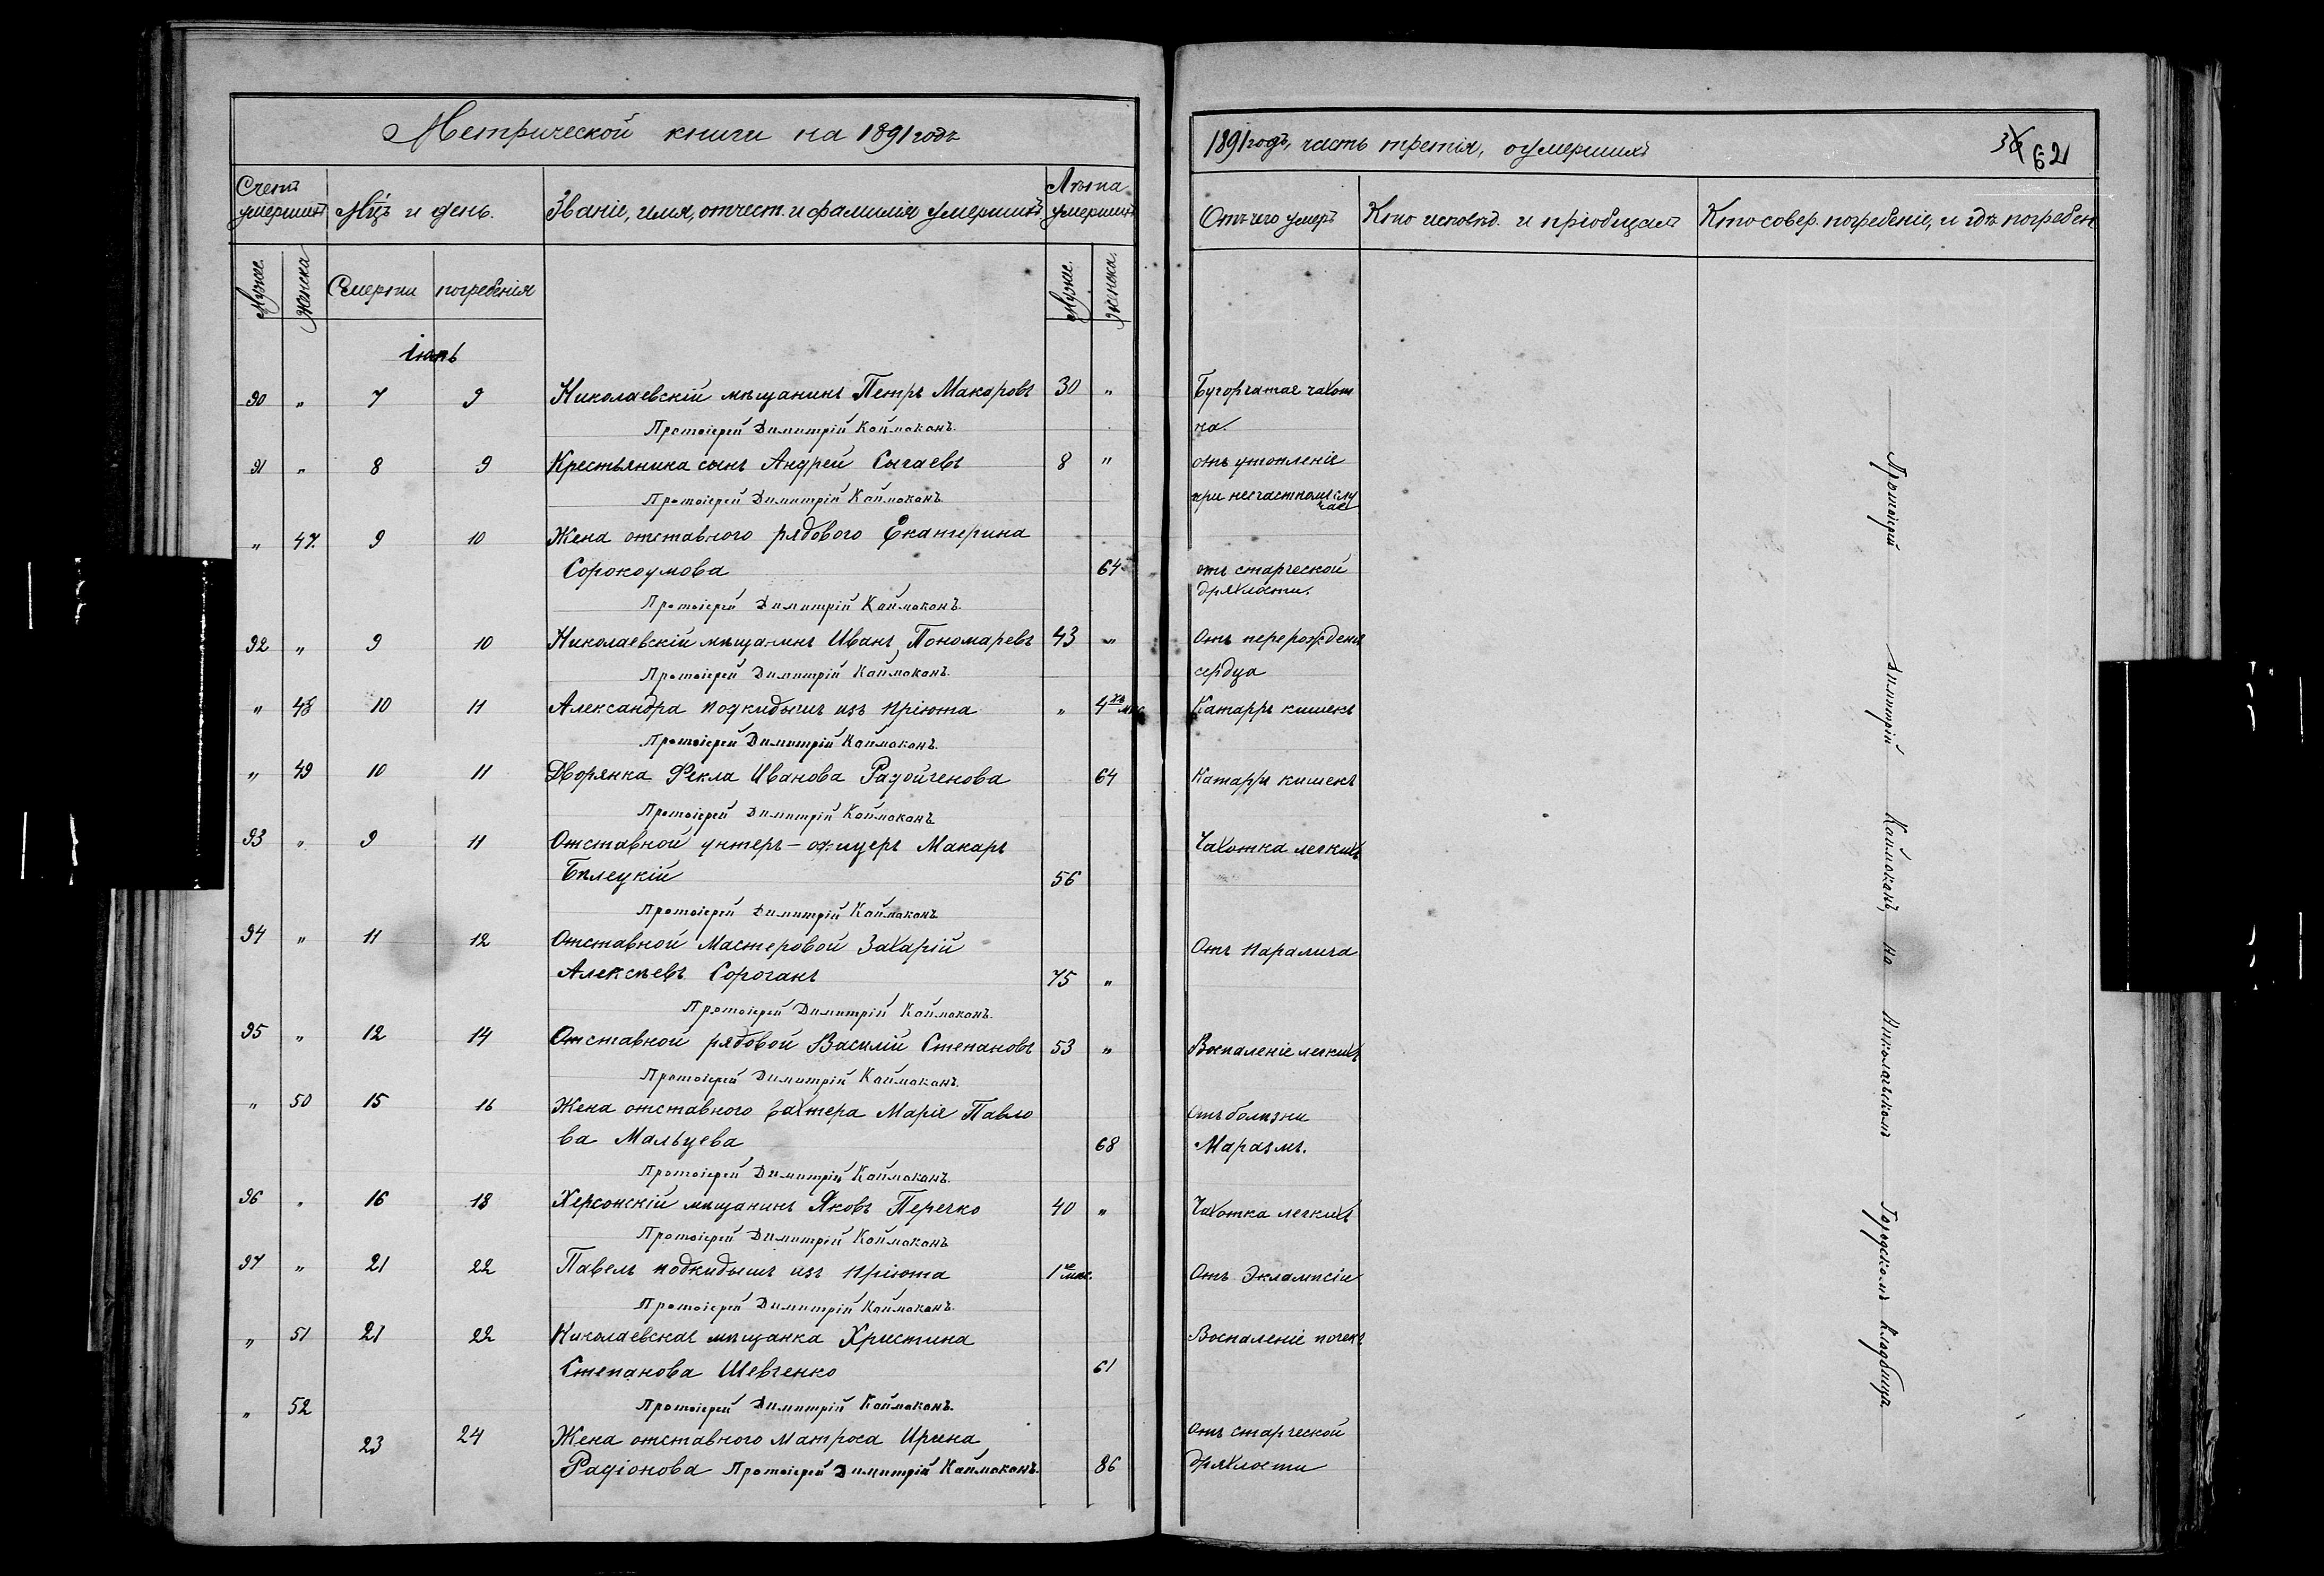 Метрической книги на 1891 годъ
Счетъ умершихъ Мцъ и день. Званіе, имя, отчест. и фамилія умершихъ Лѣта умершихъ
Муже. женска Смерти погребенія Муже. женска.
Іюнь
90 „ 7 9 Николаевскій мѣщанинъ Петръ Макаровъ 30 „
Протоіерей Димитрій Каймаканъ.
91 „ 8 9 Крестьянина сынъ Андрей Сычаевъ 8 „
Протоіерей Димитрій Каймаканъ
„ 47. 9 10 Жена отставного рядового Екатерина
Сорокоумова 64
Протоіерей Димитрій Каймаканъ.
92 „ 9 10 Николаевскій мѣщанинъ Иванъ Пономаревъ 43 „
Протоіерей Димитрій Каймаканъ.
„ 48 10 11 Александра подкидышъ изъ пріюта „ 4хъ мѣс
Протоіерей Димитрій Каймаканъ.
„ 49 10 11 Дворянка Фекла Иванова Радойченова 64
Протоіерей Димитрій Каймаканъ
93 „ 9 11 Отставной унтеръ-офицеръ Макаръ
Бѣлецкій 56
Протоіерей Димитрій Каймаканъ
94 „ 11 12 Отставной Мастеровой Захарій
Алексѣевъ Сороганъ 75 „
Протоіерей Димитрій Каймаканъ.
95 „ 12 14 Отставной рядовой Василій Степановъ 53 „
Протоіерей Димитрій Каймаканъ.
„ 50 15 16 Жена отставного вахтера Марія Павло
ва Мальцева 68
Протоіерей Димитрій Каймаканъ.
96 „ 16 18 Херсонскій мѣщанинъ Яковъ Перечко 40 „
Протоіерей Димитрій Каймаканъ
97 „ 21 22 Павелъ подкидышъ изъ пріюта 1 мѣс.
Протоіерей Димитрій Каймаканъ.
„ 51 21 22 Николаевская мѣщанка Христина
Степанова Шевченко 61
„ 52 Протоіерей Димитрій Каймаканъ.
23 24 Жена отставного матроса Ирина
Радіонова Протоіерей Димитрій Каймаканъ. 86
1891 годъ, часть третія, о умершихъ 62
Отъ чего умеръ Кто исповѣд. и пріобщалъ Кто совер. погребеніе, и гдѣ погребен
Бугорчатая чахот
ка.
отъ утопленія
при несчастномъ слу
чаѣ
отъ старческой
дряхлости.
Отъ перерожденія
сердца
Катарръ кишекъ
Катарръ кишекъ
Чахотка легкихъ
Отъ паралича
Воспаленіе легкихъ
Отъ болѣзни
Маразмъ.
Чахотка легкихъ
Отъ Экламисіи
Воспаленіе почекъ
Отъ старческой
дряхлости
Протоіерей Димитрій Каймаканъ, на Николаевскомъ Городскомъ кладбищѣ.